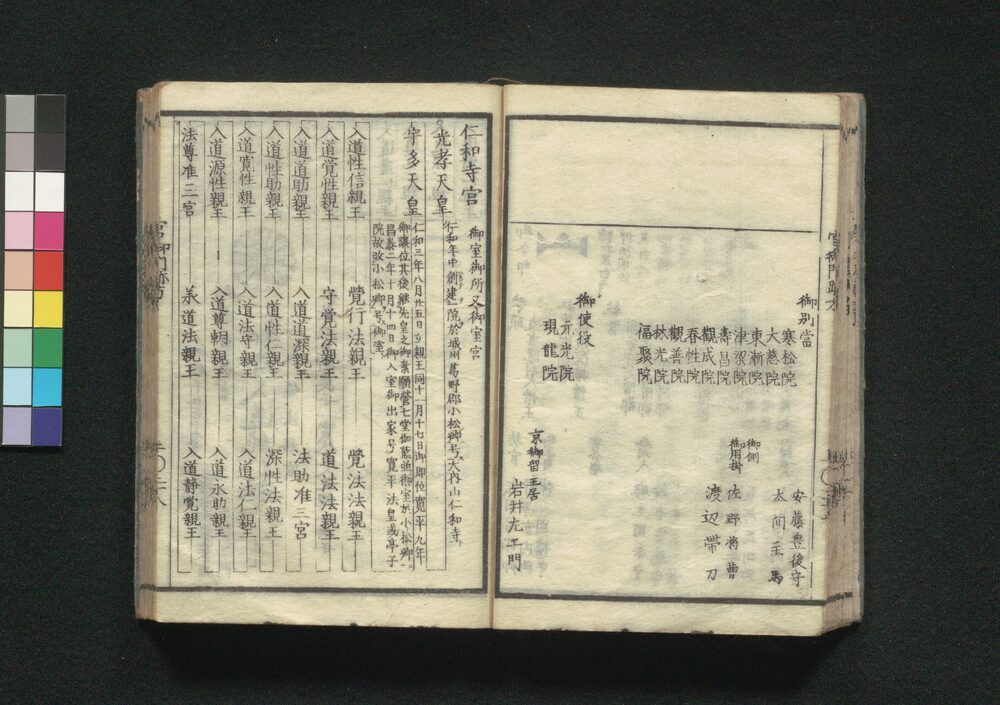 御別當
寒松院
大慈院
東漸院
津梁院
壽昌院
觀成院
春性院
觀善院
林光院
福聚院
御使役
元光院
現龍院
安藤豊後守
太間主馬
御側
御用掛
佐野将曹
渡辺帯刀
京御留主居
岩井左エ門
仁和寺宮
御室御所又御室宮
光孝天皇
仁和年中創建一院於城州葛野郡小松郷号大内山仁和寺
宇多天皇
仁和三年八月廿五日立親王同十一月十七日御即位寛平九年
御讓位其後継先皇之御素願營七堂伽藍並御室於小松郷
昌泰二年十月十四日御入室御出家号寛平法皇或亭子
院故改小松郷号御室
入道性信親王
覺行法親王
覺法法親王
入道覺性親王
守覺法親王
道法法親王
入道道助親王
入道道深親王
法助准三宮
入道性助親王
入道性仁親王
深性法親王
入道寛性親王
入道法守親王
入道法仁親王
入道源性親王
入道尊朝親王
入道永助親王
法尊准三宮
承道法親王
入道静覺親王